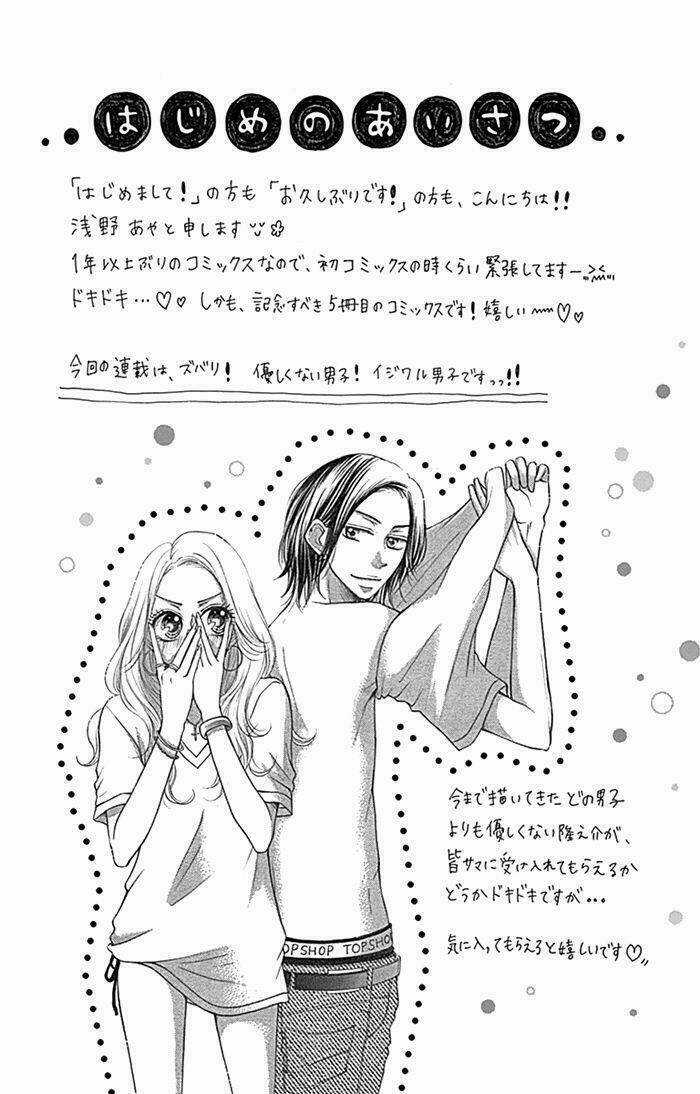 はじめのあいさつ
「はじめまして!」の方も「お久しぶりです!」の方も、こんにちは!!
浅野 あやと申します
1年以上ぶりのコミックスなので、初コミックスの時くらい緊張してますー
ドキドキ…♡♡ しかも、記念すべき5冊目のコミックスです!嬉しい〰♡♡
今回の連載は、ズバリ! 優しくない男子! イジワル男子ですっっ!!
今まで描いてきたどの男子
よりも優しくない隆之介が、
皆サマに受け入れてもらえるか
どうかドキドキですが…
気に入ってもらえると嬉しいです♡
OPSHOP TOPSHOP